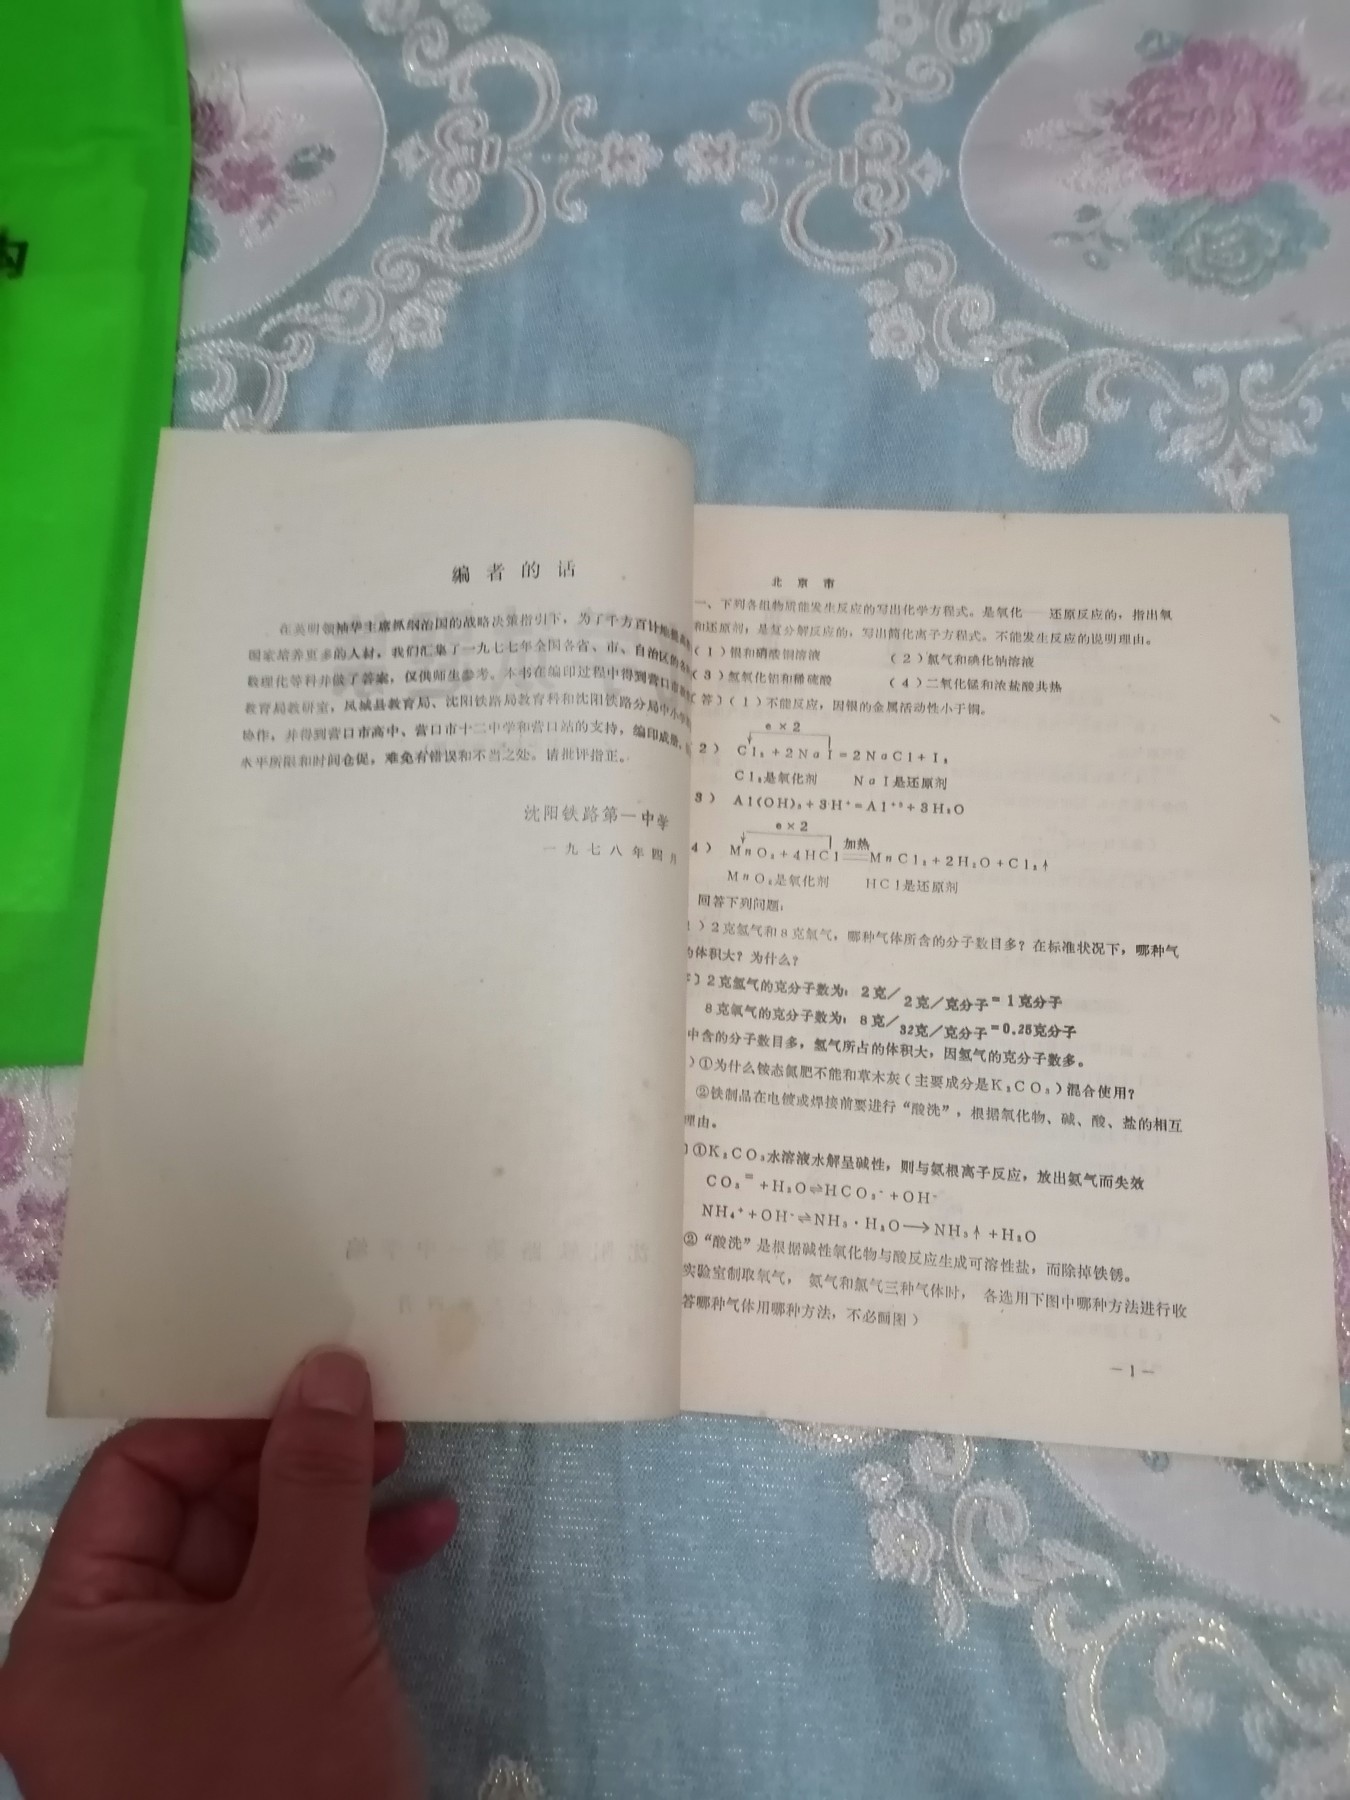 构
编者的话
在英明领袖华主席抓纲治国的战略决策指引下，为了千方百计地
国家培养更多的人材，我们汇集了一九七七年全国各省、市、自治区的
数理化等科并做了答案，仅供师生参考。本书在编印过程中得到营口市
教育局教研室，凤城县教育局、沈阳铁路局教育科和沈阳铁路分局中小学
协作，并得到营口市高中、营口市十二中学和营口站的支持，编印成册，
水平所限和时间仓促，难免有错误和不当之处。请批评指正。
沈阳铁路第一中学
一九七八年四月
北京市
一、下列各组物质能发生反应的写出化学方程式。是氧化——还原反应的，指出氧
和还原剂，是复分解反应的，写出简化离子方程式。不能发生反应的说明理由。
（1）银和硝酸铜溶液 （2）氯气和碘化钠溶液
（3）氢氧化铝和稀硫酸 （4）二氧化锰和浓盐酸共热
〔答〕（1）不能反应，因银的金属活动性小于铜。
e×2
2） Cl₂+2NaI=2NaCl+I₂
Cl₂是氧化剂 NaI是还原剂
3） Al(OH)₃+3H⁺=Al⁺³+3H₂O
e×2
4） MnO₂+4HCl 加热 MnCl₂+2H₂O+Cl₂↑
MnO₂是氧化剂 HCl是还原剂
回答下列问题：
）2克氢气和8克氧气，哪种气体所含的分子数目多？在标准状况下，哪种气
体积大？为什么？
〕2克氢气的克分子数为：2克/2克/克分子=1克分子
8克氧气的克分子数为：8克/32克/克分子=0.25克分子
中含的分子数目多，氢气所占的体积大，因氢气的克分子数多。
）①为什么铵态氮肥不能和草木灰（主要成分是K₂CO₃）混合使用？
②铁制品在电镀或焊接前要进行“酸洗”，根据氧化物、碱、酸、盐的相互
理由。
〕①K₂CO₃水溶液水解呈碱性，则与氨根离子反应，放出氨气而失效
CO₃⁼+H₂O⇌HCO₃⁻+OH⁻
NH₄⁺+OH⁻⇌NH₃·H₂O→NH₃↑+H₂O
②“酸洗”是根据碱性氧化物与酸反应生成可溶性盐，而除掉铁锈。
实验室制取氧气， 氨气和氯气三种气体时， 各选用下图中哪种方法进行收
答哪种气体用哪种方法，不必画图）
—1—